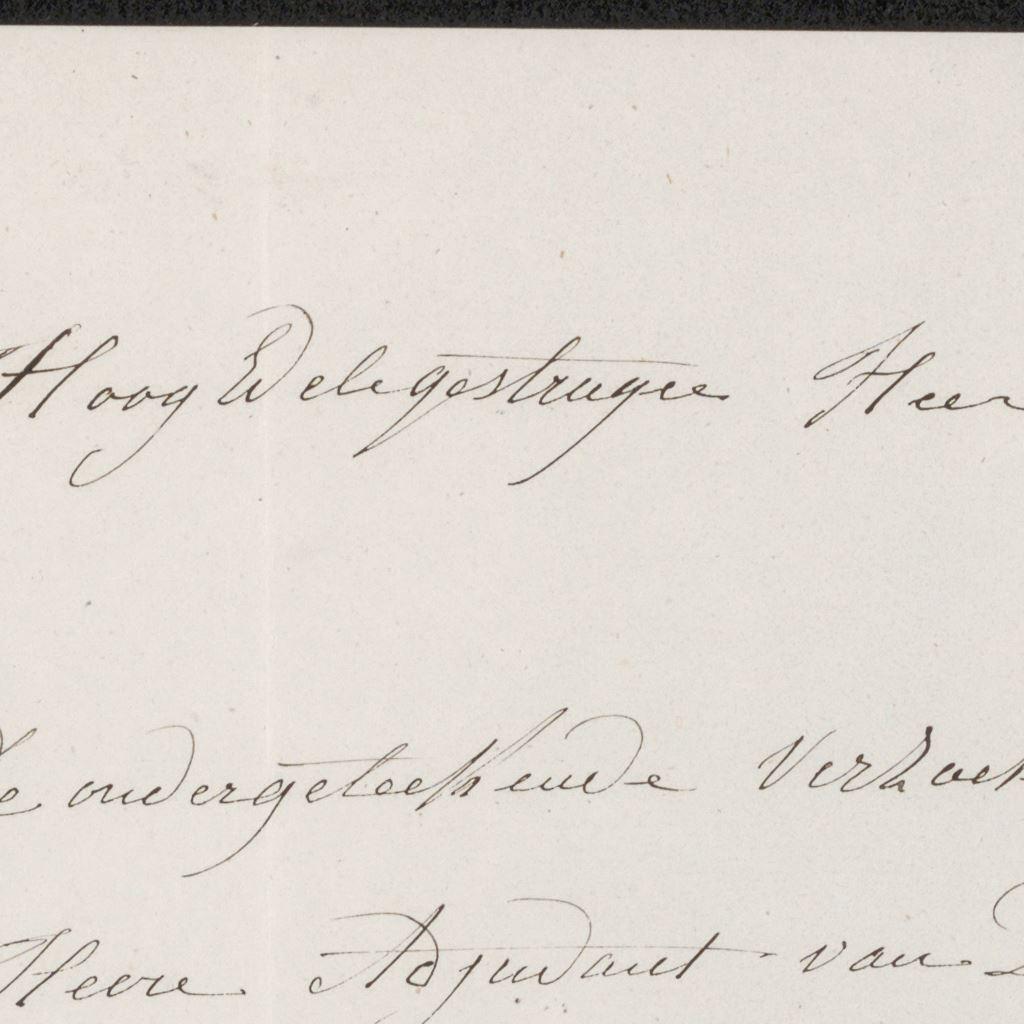 Hoog Edelegestrugee Heer
De ondergeteekende Verzoek
Heere Adjudant van